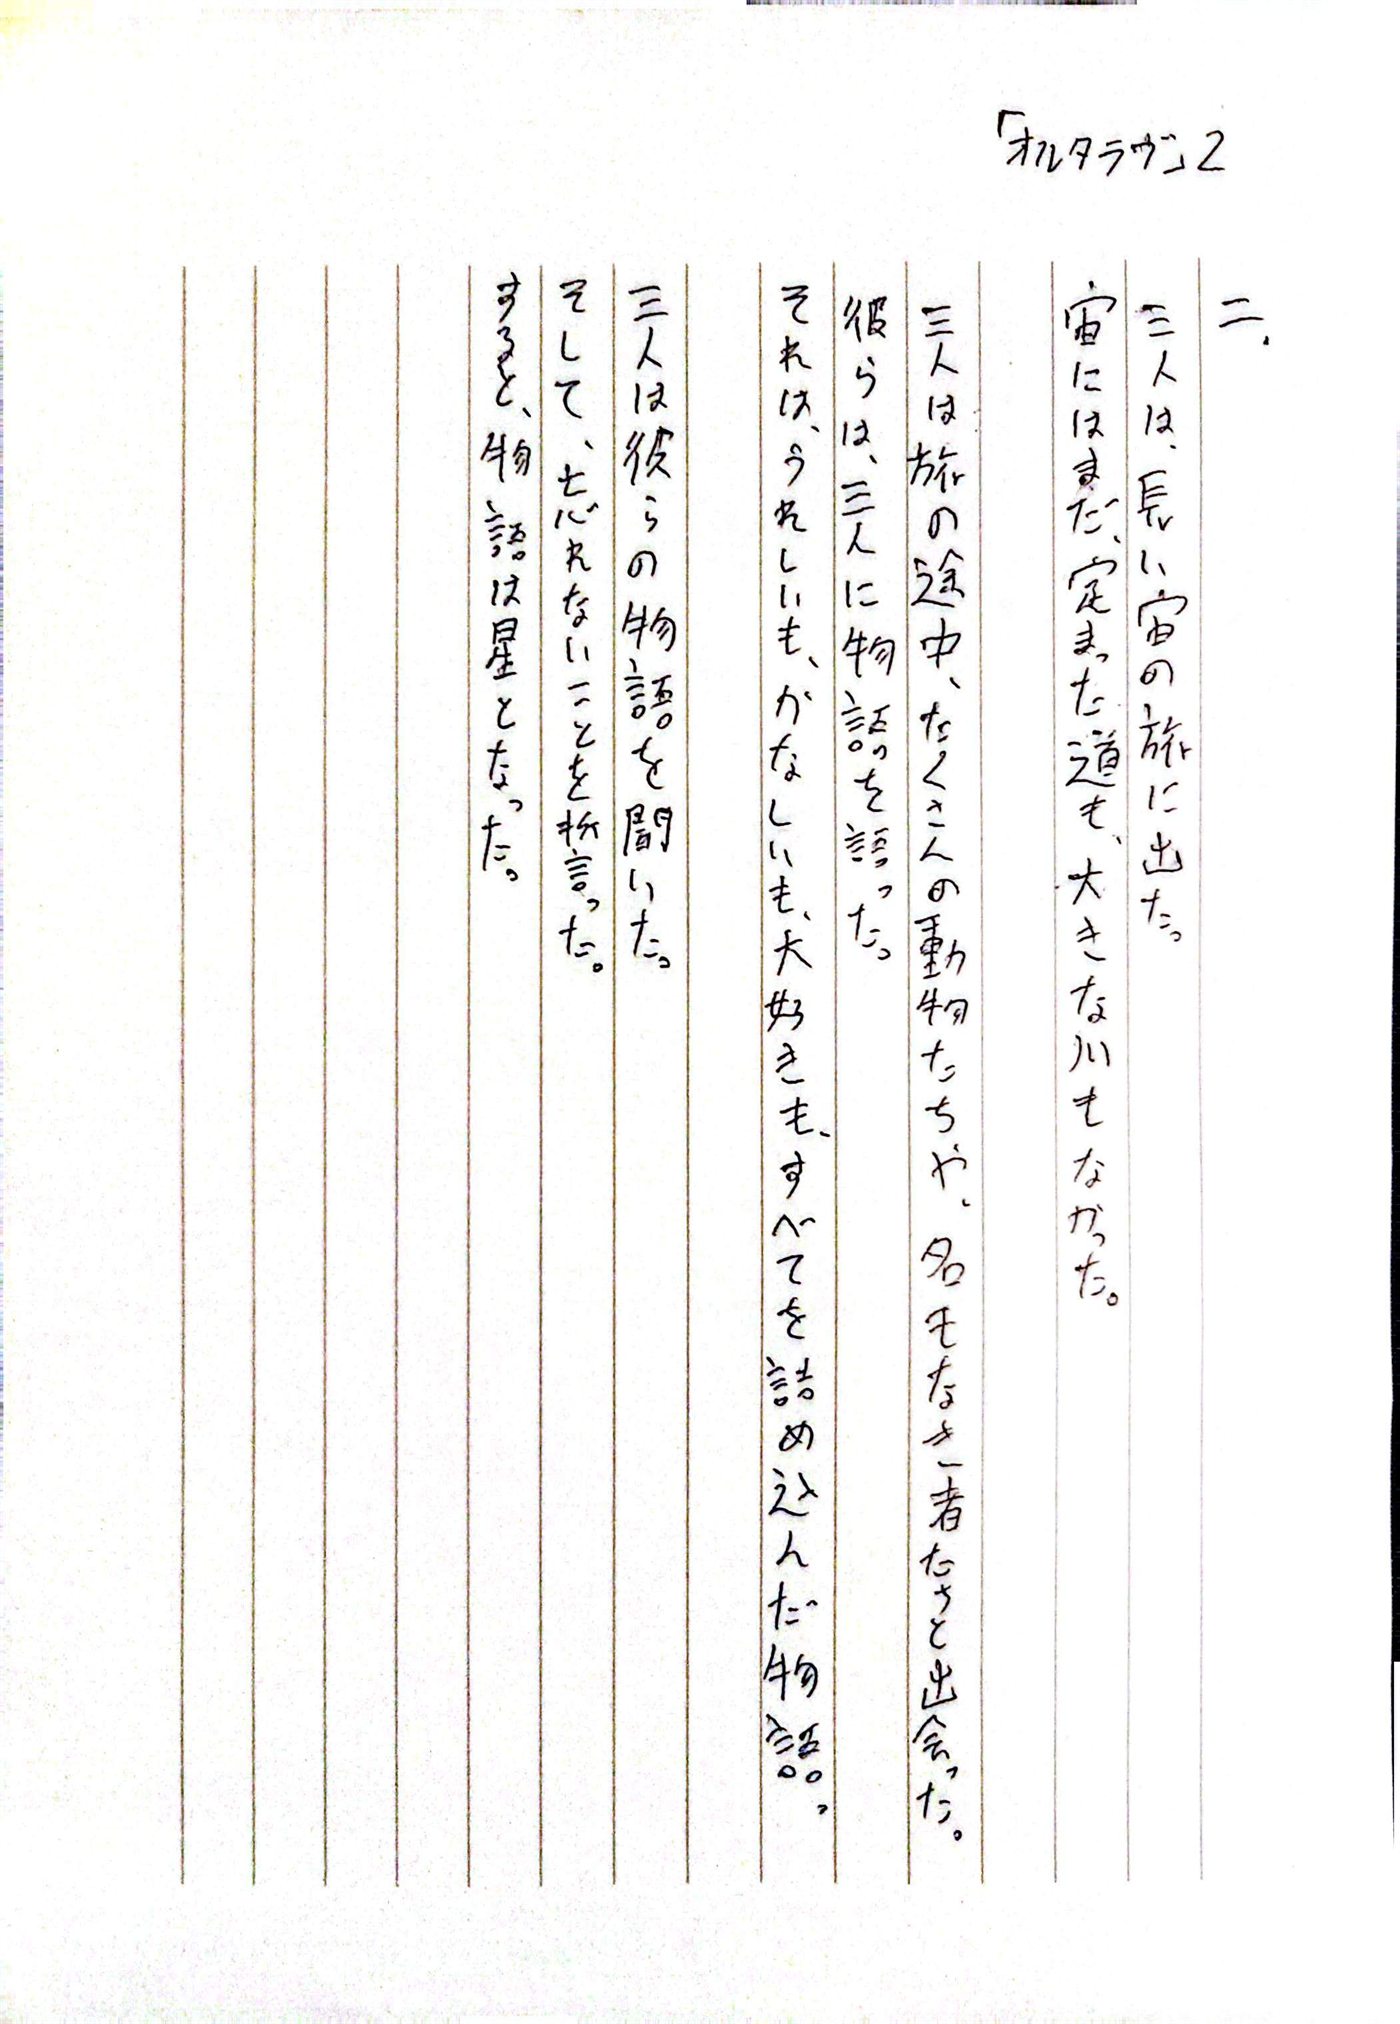 「オルタラヴ」2
二、
三人は、長い宙の旅に出た。
宙にはまだ、定まった道も、大きな川もなかった。
三人は旅の途中、たくさんの動物たちや、名もなき者たちと出会った。
彼らは、三人に物語を語った。
それは、うれしいも、かなしいも、大好きも、すべてを詰め込んだ物語。
三人は彼らの物語を聞いた。
そして、忘れないことを誓った。
すると、物語は星となった。